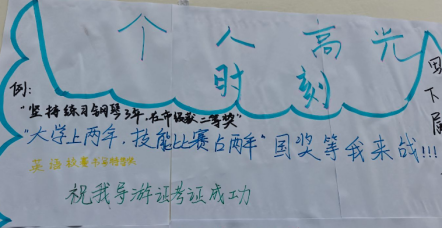 个人高光
时刻
例:
"坚持练习钢琴3年,在市级获二等奖"
"大学上两年,技能比赛占两年"国奖等我来战!!!
英语
祝我导游证考证成功
下